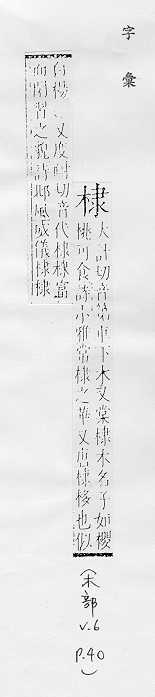 字彙
棣
大計切音第車下木又棠棣木名子如櫻
桃可食詩小雅常棣之華又唐棣栘也似
白楊、又度耐切音代棣棣富
而閑習之貌詩邶風威儀棣棣
(木部 v.6 P.40)